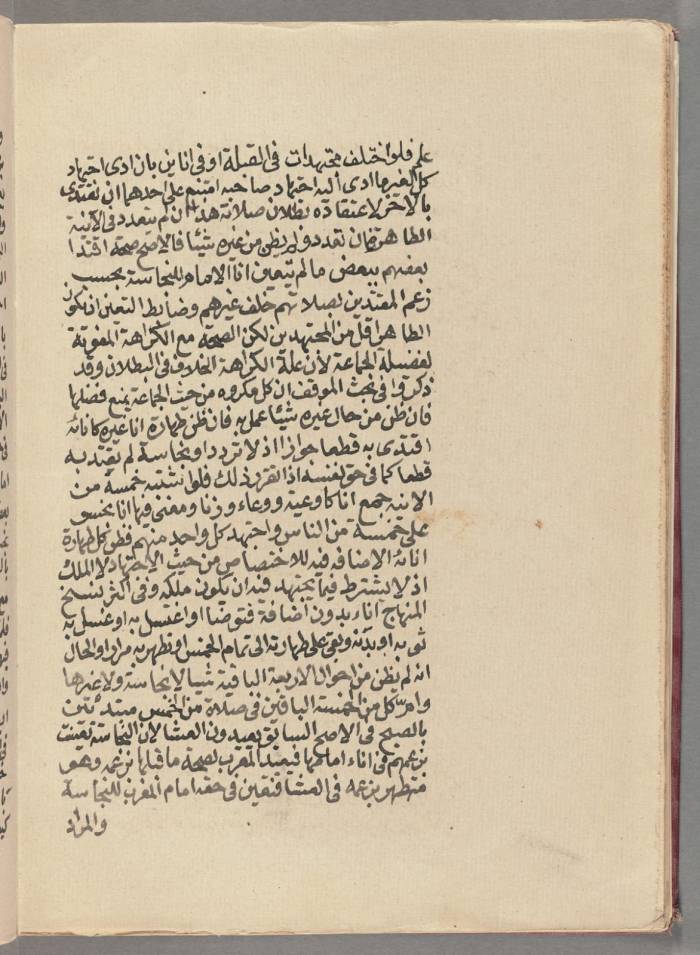 علم فلو اختلف مجتهدات في القبلة او في اناين بان ادى اجتهاد
كل لغير ما ادى اليه اجتهاد صاحبه امتنع على احدهما ان يقتدي
بالاخر لاعتقاده بطلان صلاته هذا ان لم يتعدد في الآنية
الطاهر فان تعدد ولم يظن من غيره شيئا فالاصح صحة اقتدا
بعضهم ببعض ما لم يتعين انا الامام للنجاسة بحسب
زعم المقتدين بصلاتهم خلف غيرهم وضابط التعين ان يكون
الطاهر اقل من المجتهدين لكن الصحة مع الكراهة المفوتة
لفضيلة الجماعة لأن علة الكراهة الخلاف في البطلان وقد
ذكروا في بحث الموقف ان كل مكروه من حيث الجماعة يمنع فضلها
فان ظن من حال غيره شيئا عمل به فان ظن طهارة انا غيره كانائه
اقتدى به قطعا جوازا اذ لا تردد او نجاسة لم يقتد به
قطعا كما في حق نفسه اذا تقرر ذلك فلو اشتبه خمسة من
الانية جمع انا كاوعية ووعاء وزنا ومعنى فيها انا نجس
على خمسة من الناس واجتهد كل واحد منهم فظن كل طهارة
انائه الاضافه فيه للاختصاص من حيث الاجتهاد لا الملك
اذ لا يشترط فيما يجتهد فيه ان يكون ملكه وفي اكثر نسخ
المنهاج اناء بدون اضافة فتوضا او اغتسل به او غسل به
ثوبه او بدنه وبقي على طهارته الى تمام الخمس او تطهر به مرارا والحال
انه لم يظن من احوال الاربعة الباقية شيا لا نجاسة ولا غيرها
وام كل من الخمسة الباقين في صلاة من الخمس مبتدئين
بالصبح ففي الاصح السابق يعيدون العشا لان النجاسة تعينت
بزعمهم في اناء امامها فيعيد المغرب لصحة ما قبلها بزعمه وهو
متطهر بزعمه في العشا فتعين في حقه امام المغرب للنجاسة
والمراد